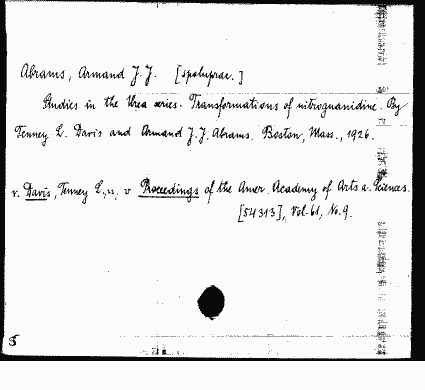 Abrams, Armand J. J. [spoluprac.]
Studies in the Urea series. Transformations of nitroguanidine. By
Tenney L. Davis and Armand J. J. Abrams. Boston, Mass., 1926.
v. Davis, Tenney L., v Proceedings of the Amer. Academy of Arts a. Sciences.
[54313], Vol. 61, No. 9.